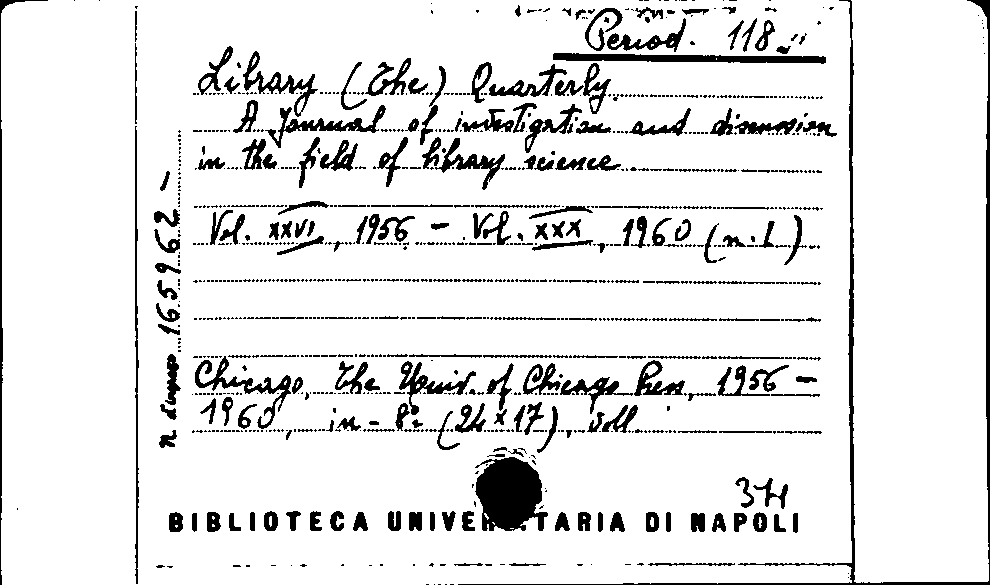 Period. 118
Library (The) Quarterly.
A Journal of investigation and discussion
in the field of library science.
Vol. XXVI, 1956 - Vol. XXX, 1960 (n.1)
n. d'ingresso 165962 -
Chicago, The Univ. of Chicago Press, 1956 -
1960, in-8° (24x17), voll.
BIBLIOTECA UNIVERSITARIA DI NAPOLI